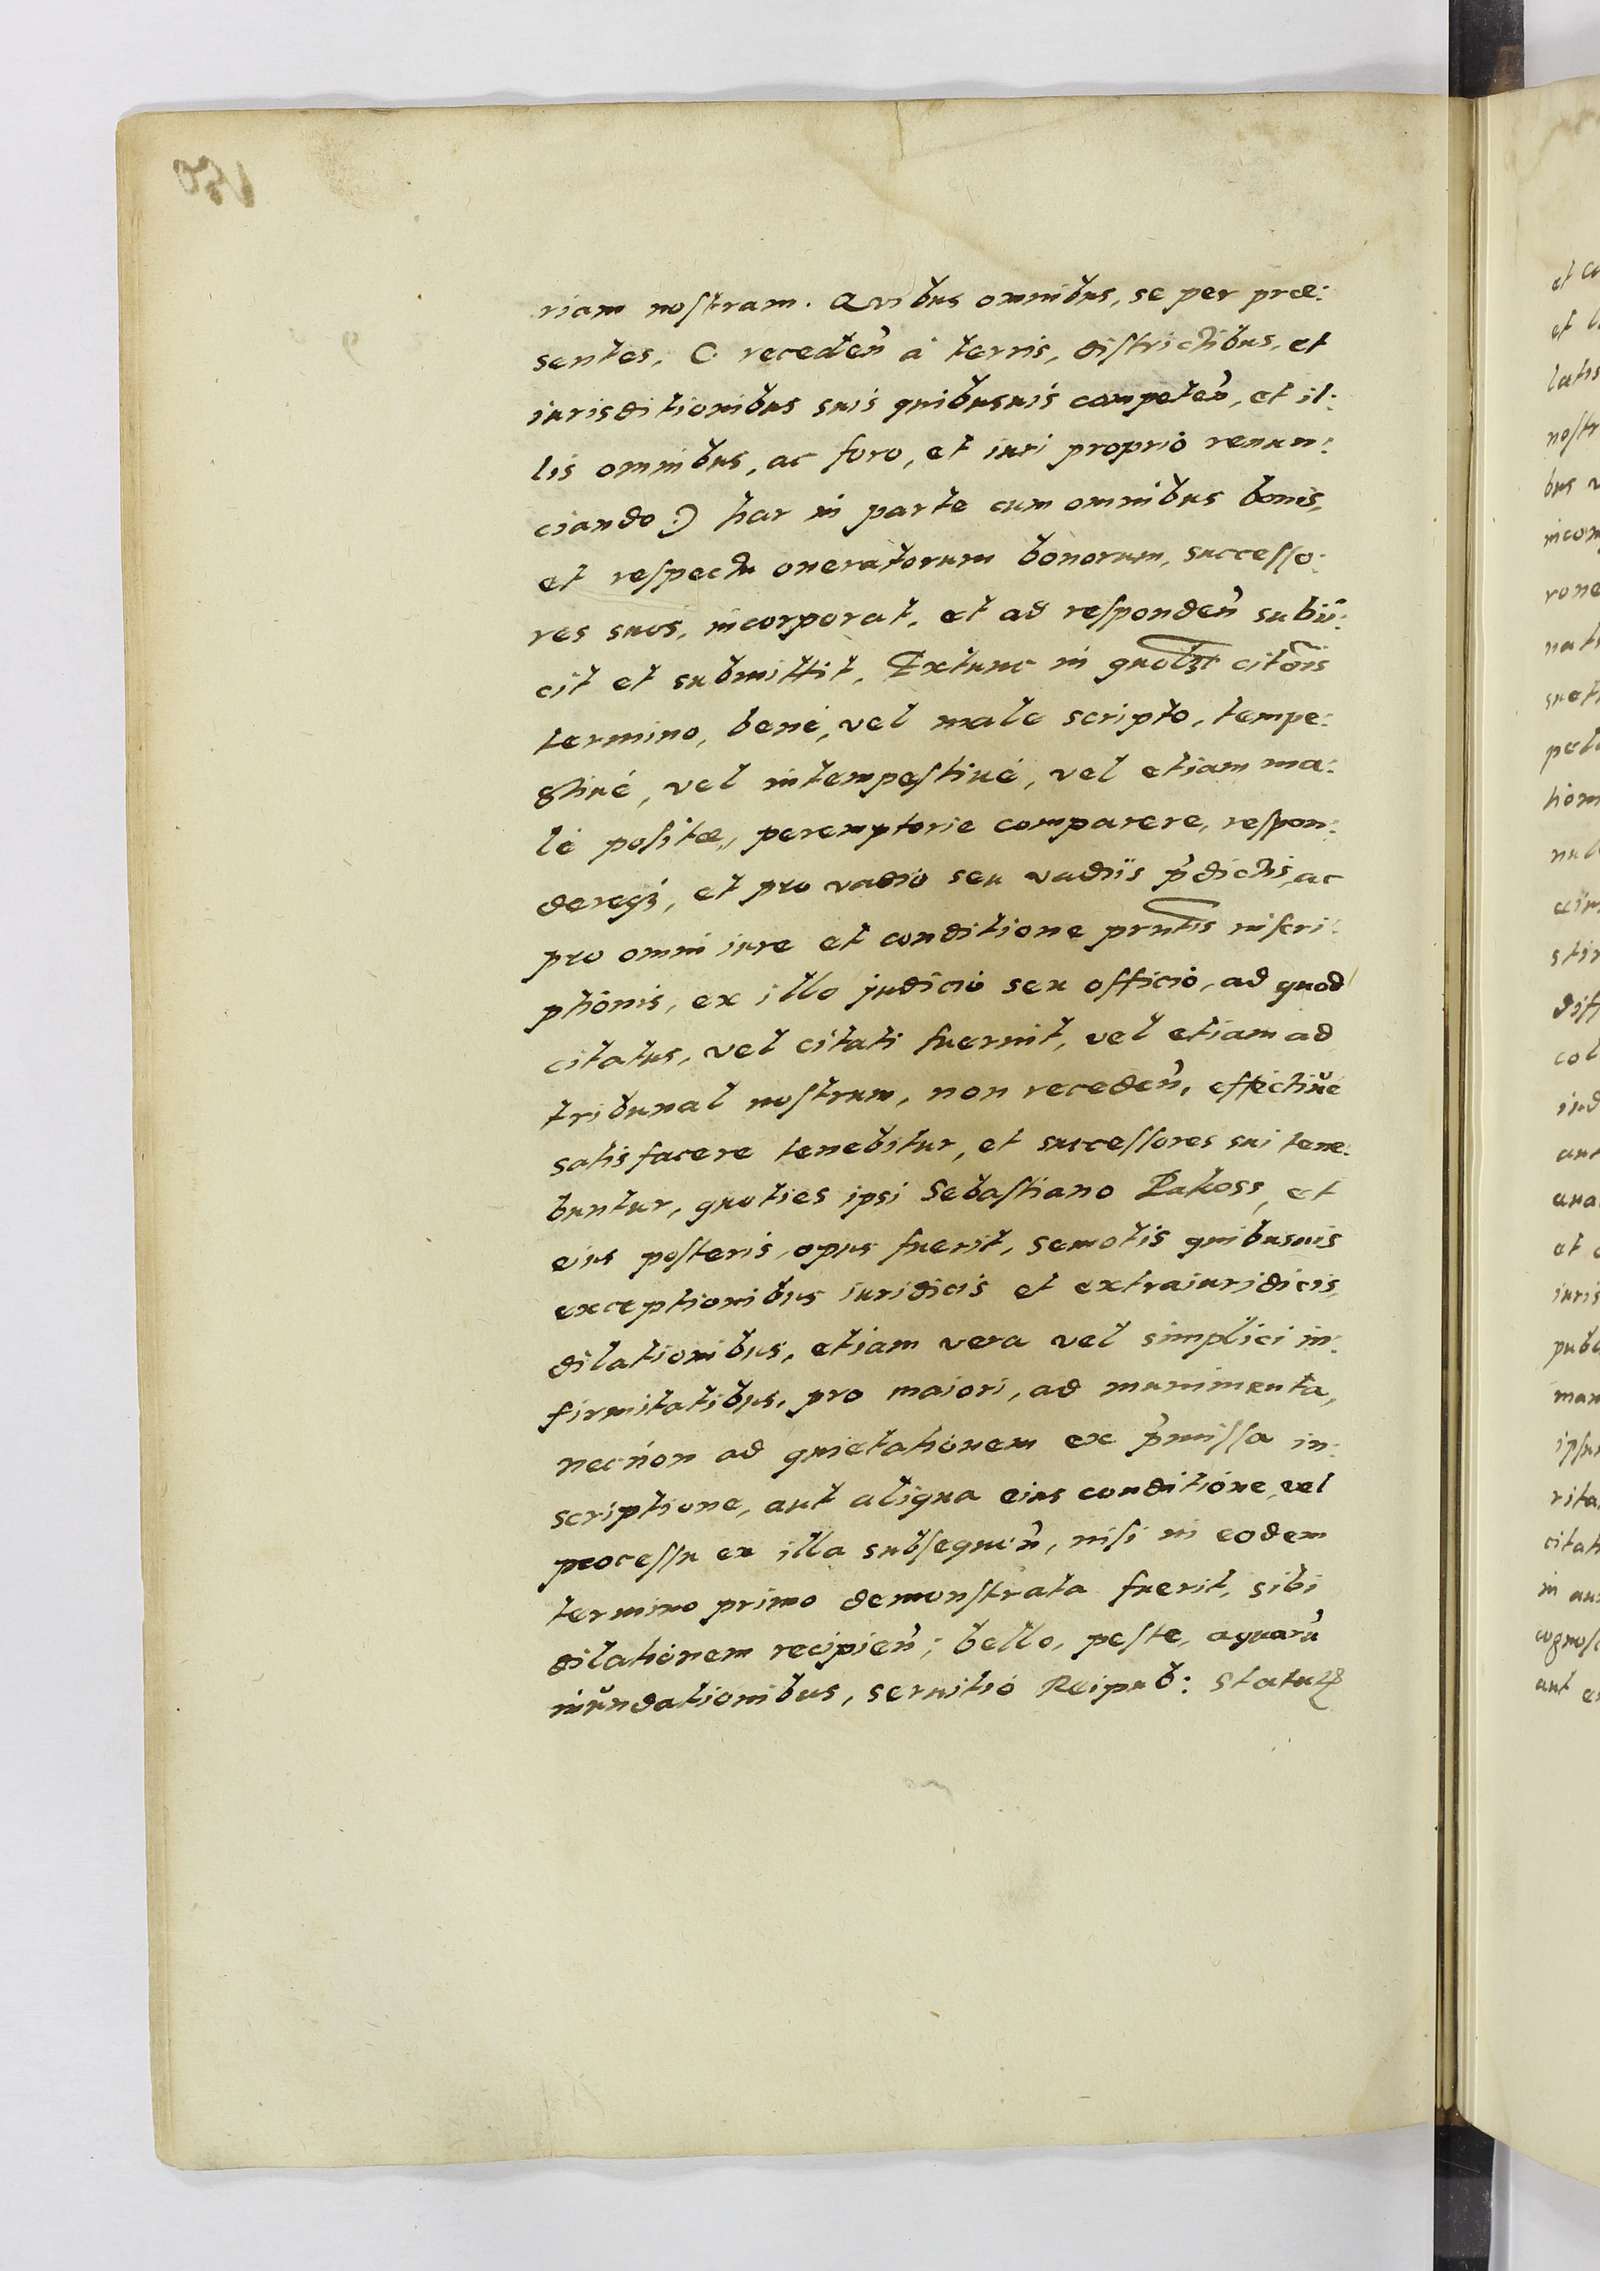 riam nostram. Quibus omnibus, se per præ:
sentes, C receden̄ à terris, districtibus, et
iurisditionibus suis quibusuis competen̄, et il:
lis omnibus, ac foro, et iuri proprio renun:
ciando :) hac in parte cum omnibus bonis,
et respectu oneratorum bonorum, successo:
res suos, incorporat, et ad responden̄ subij:
cit et submittit, Extunc in quolibet citōnis
termino, benè, vel male scripto, tempe:
stiuè, vel intempestiuè, vel etiam ma:
lè positæ, peremptorie comparere, respon:
dereqʒ, et pro vadio seu vadiis p̄dictis, ac
pro omni iure et conditione prn̄tis inscri:
ptionis, ex illo judicio seu officio, ad quod
citatus, vel citati fuerint, vel etiam ad
tribunal nostrum, non receden̄, effectiuè
satisfacere tenebitur, et successores sui tene:
buntur, quoties ipsi Sebastiano Rakoss, et
eius posteris, opus fuerit, semotis quibusuis
exceptionibus iuridicis et extraiuridicis,
dilationibus, etiam vera vel simplici in:
firmitatibus, pro maiori, ad munimenta,
necnon ad quietationem ex p̄missa in:
scriptione, aut aliqua eius conditione, vel
processu ex illa subsequen̄, nisi in eodem
termino primo demonstrata fuerit, sibi
dilationem recipien̄; bello, peste, aquarū
inundationibus, seruitio Reipub: Statuū